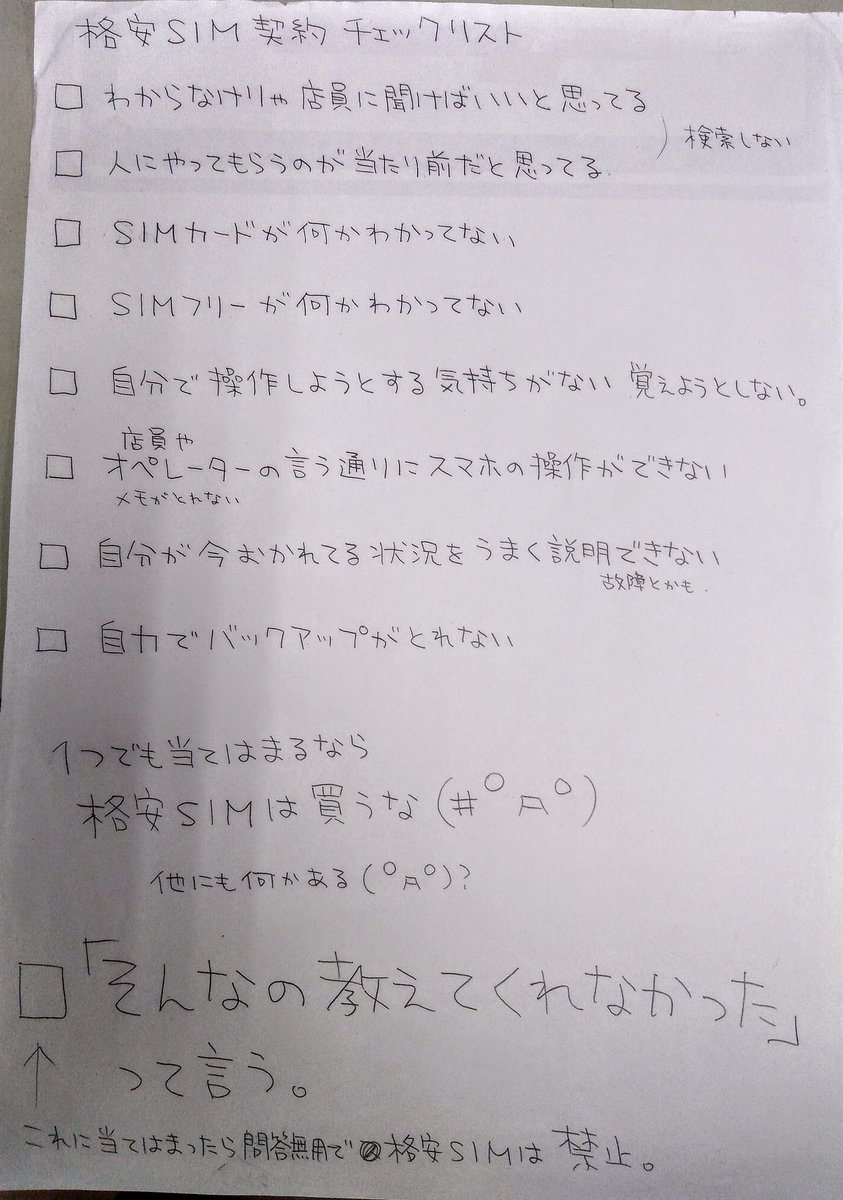 格安SIM契約 チェックリスト
□ わからなけりゃ店員に聞けばいいと思ってる
) 検索しない
□ 人にやってもらうのが当たり前だと思ってる.
□ SIMカードが何かわかってない
□ SIMフリーが何かわかってない
□ 自分で操作しようとする気持ちがない 覚えようとしない。
店員や
□ オペレーターの言う通りにスマホの操作ができない
メモがとれない
□ 自分が今おかれてる状況をうまく説明できない
故障とかも.
□ 自力でバックアップがとれない
1つでも当てはまるなら
格安SIMは買うな(#゚Д゚)
他にも何かある(゚Д゚)?
□「そんなの教えてくれなかった」
↑ って言う。
これに当てはまったら問答無用で格安SIMは禁止。